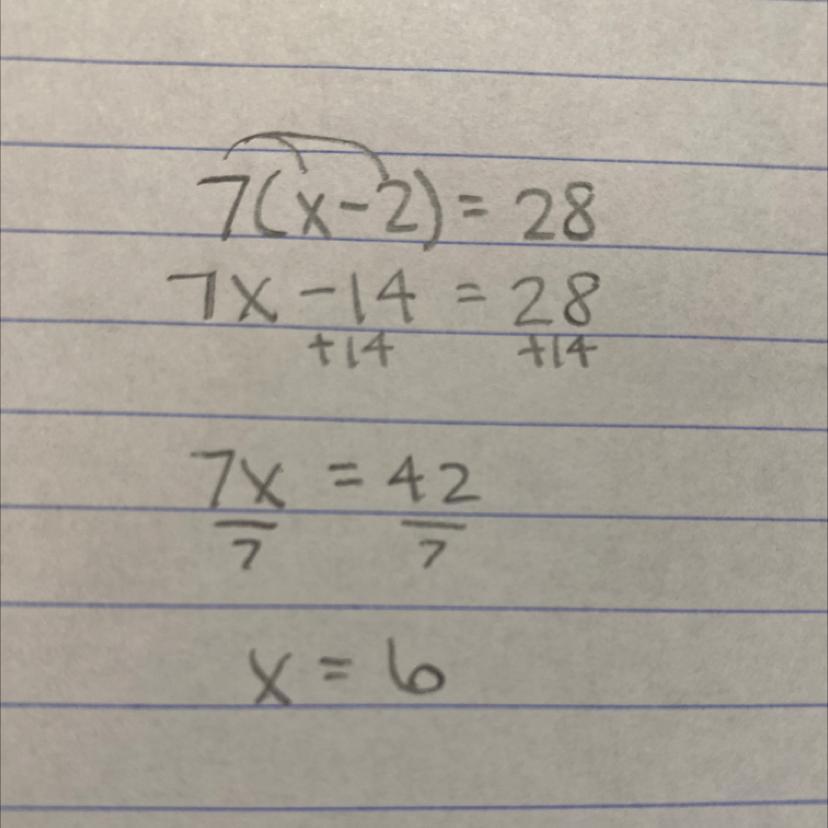 7(x-2) = 28
7x -14 = 28
+14 +14
7x = 42
7 7
x = 6